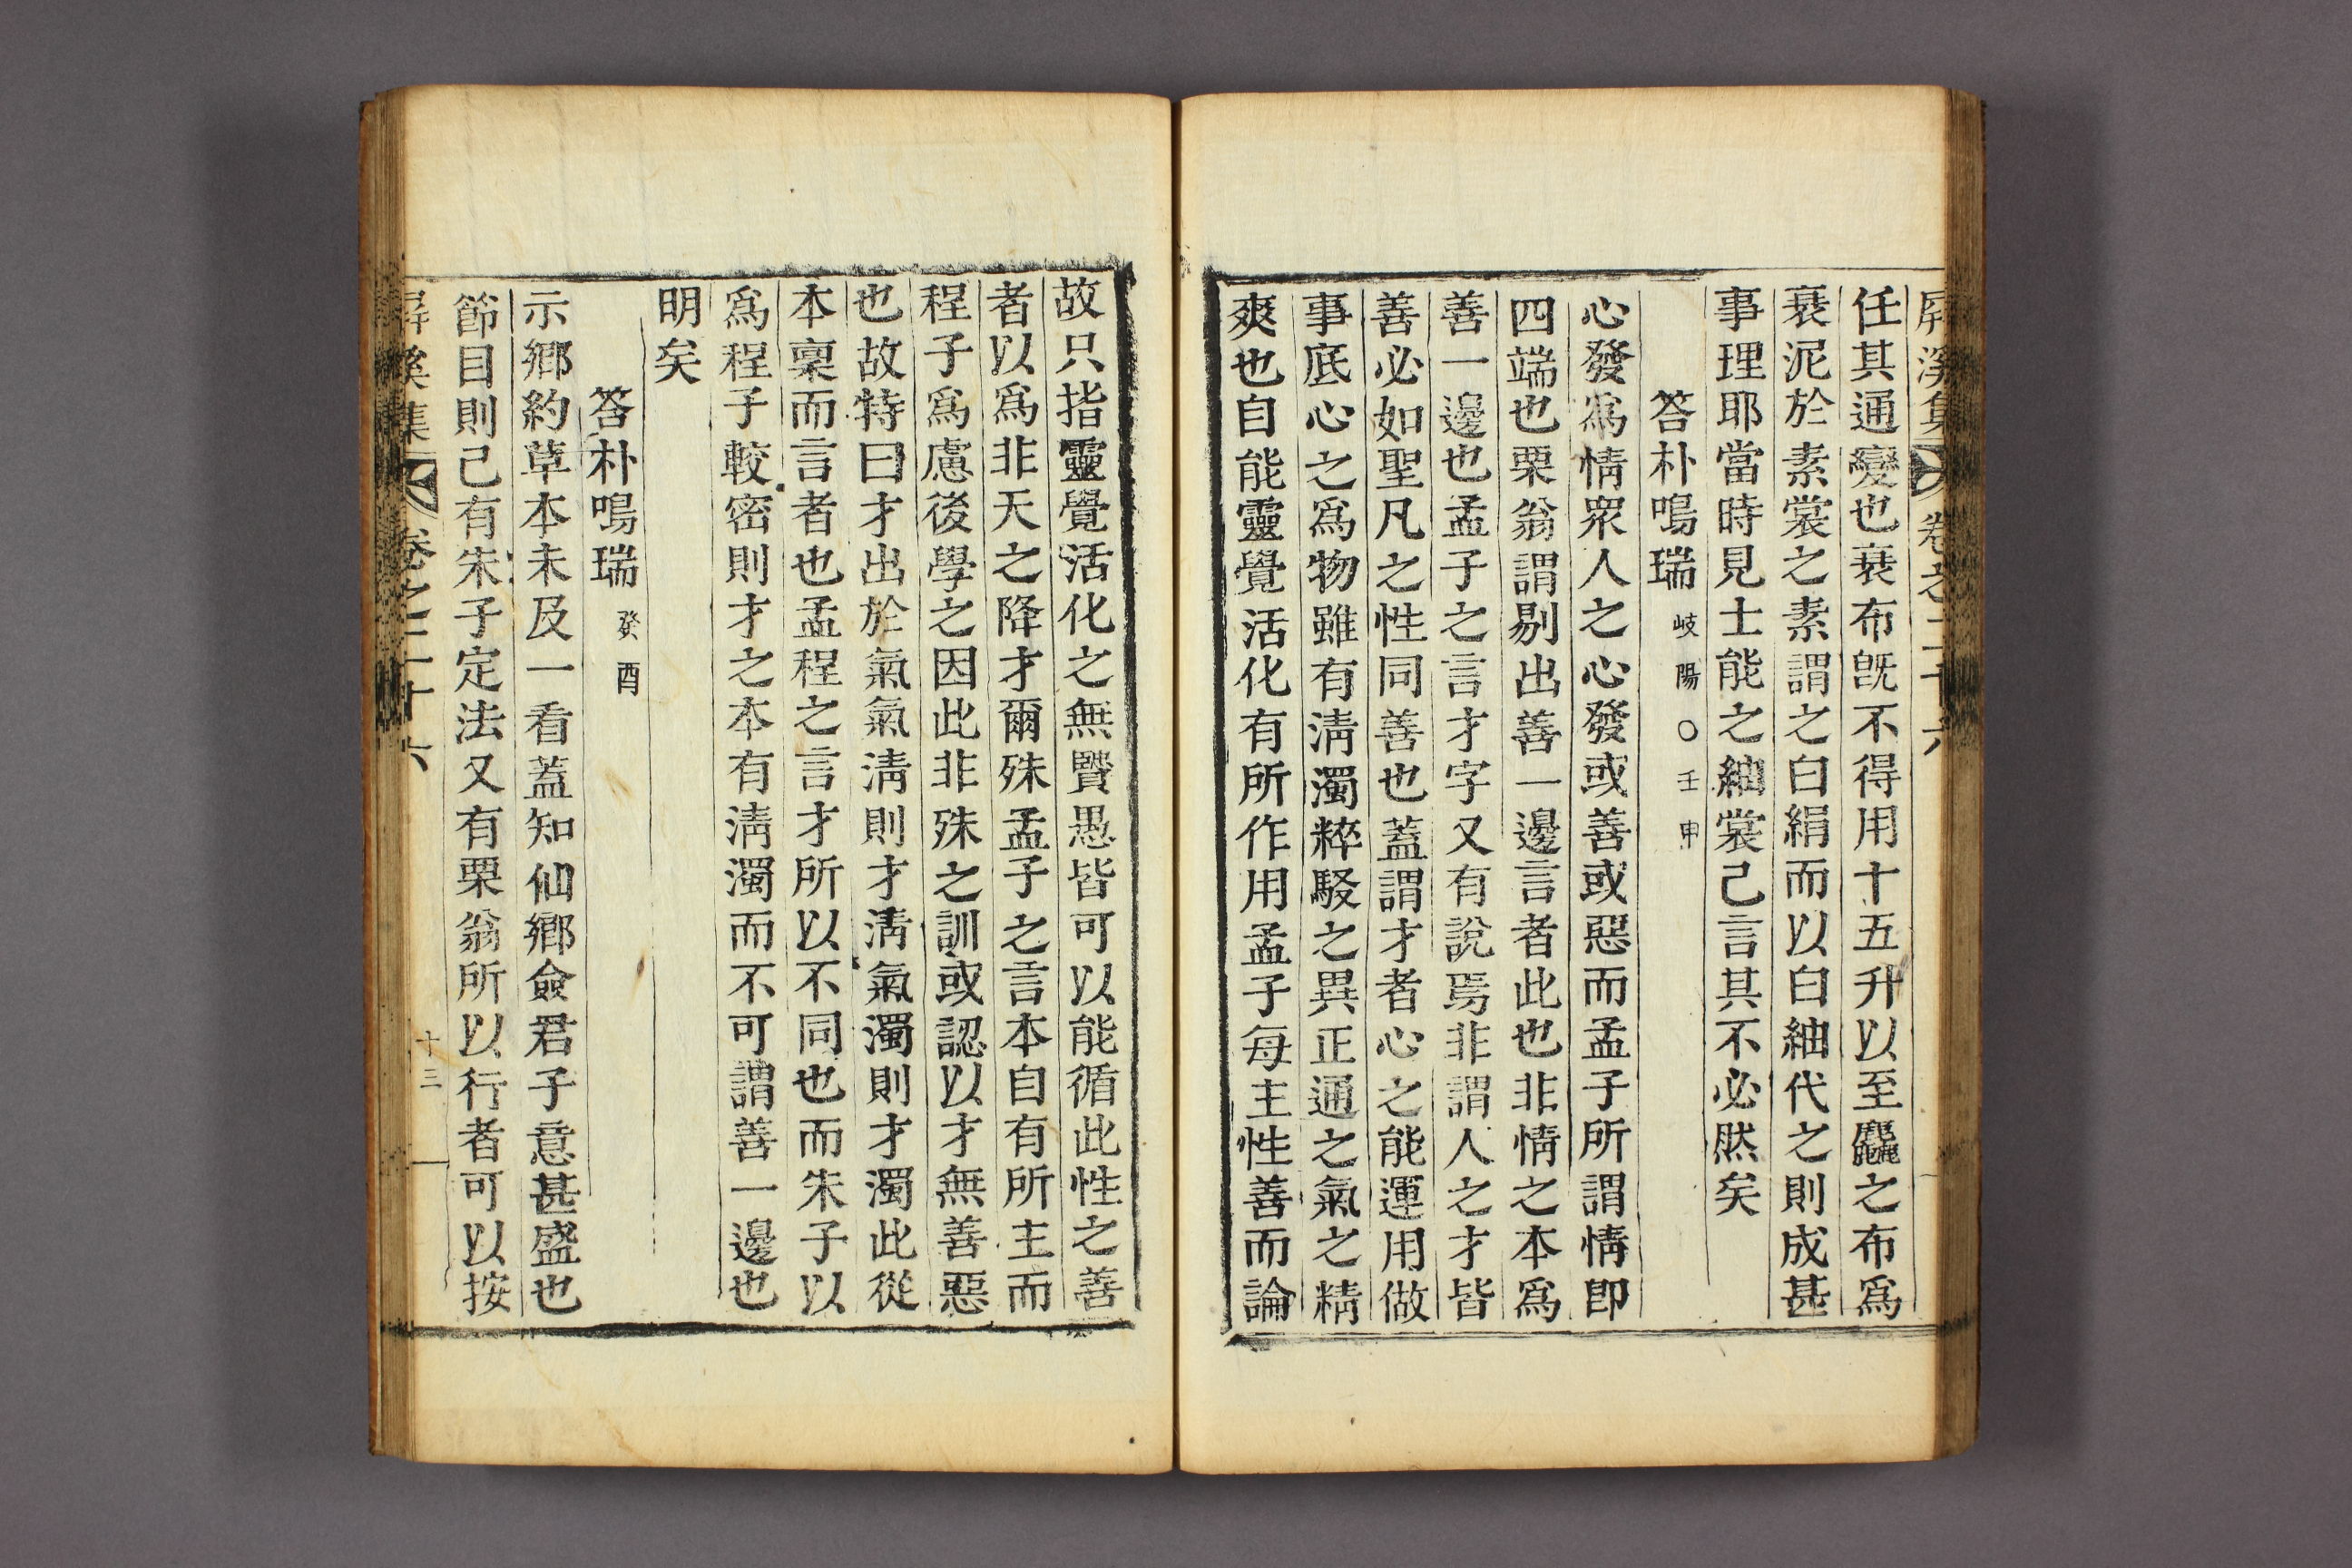 屏溪集 卷之二十六
任其通變也衰布旣不得用十五升以至麤之布爲
衰泥於素裳之素謂之白絹而以白紬代之則成甚
事理耶當時見士能之紬裳己言其不必然矣
答朴鳴瑞 岐陽○壬申
心發爲情衆人之心發或善或惡而孟子所謂情卽
四端也栗翁謂剔出善一邊言者此也非情之本爲
善一邊也孟子之言才字又有說焉非謂人之才皆
善必如聖凡之性同善也蓋謂才者心之能運用做
事底心之爲物雖有淸濁粹駁之異正通之氣之精
爽也自能靈覺活化有所作用孟子每主性善而論
故只指靈覺活化之無賢愚皆可以能循此性之善
者以爲非天之降才爾殊孟子之言本自有所主而
程子爲慮後學之因此非殊之訓或認以才無善惡
也故特曰才出於氣氣淸則才淸氣濁則才濁此從
本稟而言者也孟程之言才所以不同也而朱子以
爲程子較密則才之本有淸濁而不可謂善一邊也
明矣
答朴鳴瑞 癸酉
示鄕約草本未及一看蓋知仙鄕僉君子意甚盛也
節目則己有朱子定法又有栗翁所以行者可以按
屏溪集 卷之二十六 十三